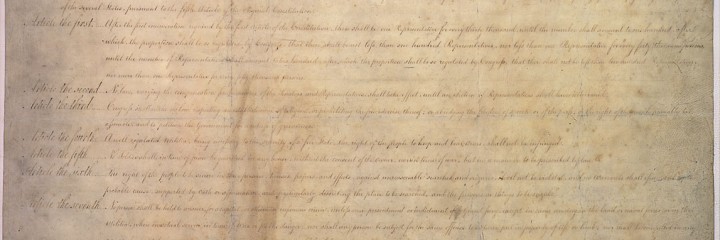 of the several States, pursuant to the fifth Article of the original Constitution.
Article the first. After the first enumeration required by the first Article of the Constitution, there shall be one Representative for every thirty thousand, until the number shall amount to one hundred, after
which, the proportion shall be so regulated by Congress, that there shall be not less than one hundred Representatives, nor less than one Representative for every forty thousand persons,
until the number of Representatives shall amount to two hundred, the proportion shall be so regulated by Congress, that there shall not be less than two hundred Representatives,
nor more than one Representative for every fifty thousand persons.
Article the second. No law, varying the compensation for the services of the Senators and Representatives, shall take effect, until an election of Representatives shall have intervened.
Article the third. Congress shall make no law respecting an establishment of religion, or prohibiting the free exercise thereof; or abridging the freedom of speech, or of the press; or the right of the people
Government
Article the fourth. A well regulated Militia, being necessary to the security of a free State, the right of the people to keep and bear Arms, shall not be infringed.
Article the fifth. No Soldier shall, in time of peace be quartered in any house, without the consent of the owner, nor in time of war, but in a manner to be prescribed by law.
Article the sixth. The right of the people to be secure in their persons, houses, papers, and effects, against unreasonable searches and seizures, shall not be violated, and no Warrants shall issue, but upon
probable cause, supported by Oath or affirmation, and particularly describing the place to be searched, and the persons or things to be seized.
Article the seventh. No person shall be held to answer for a capital, or otherwise infamous crime, unless on a presentment or indictment of a Grand Jury, except in cases arising in the land or naval forces, or in the
Militia, when in actual service in time of War or public danger; nor shall any person be subject for the same offence to be twice put in jeopardy of life or limb; nor shall be